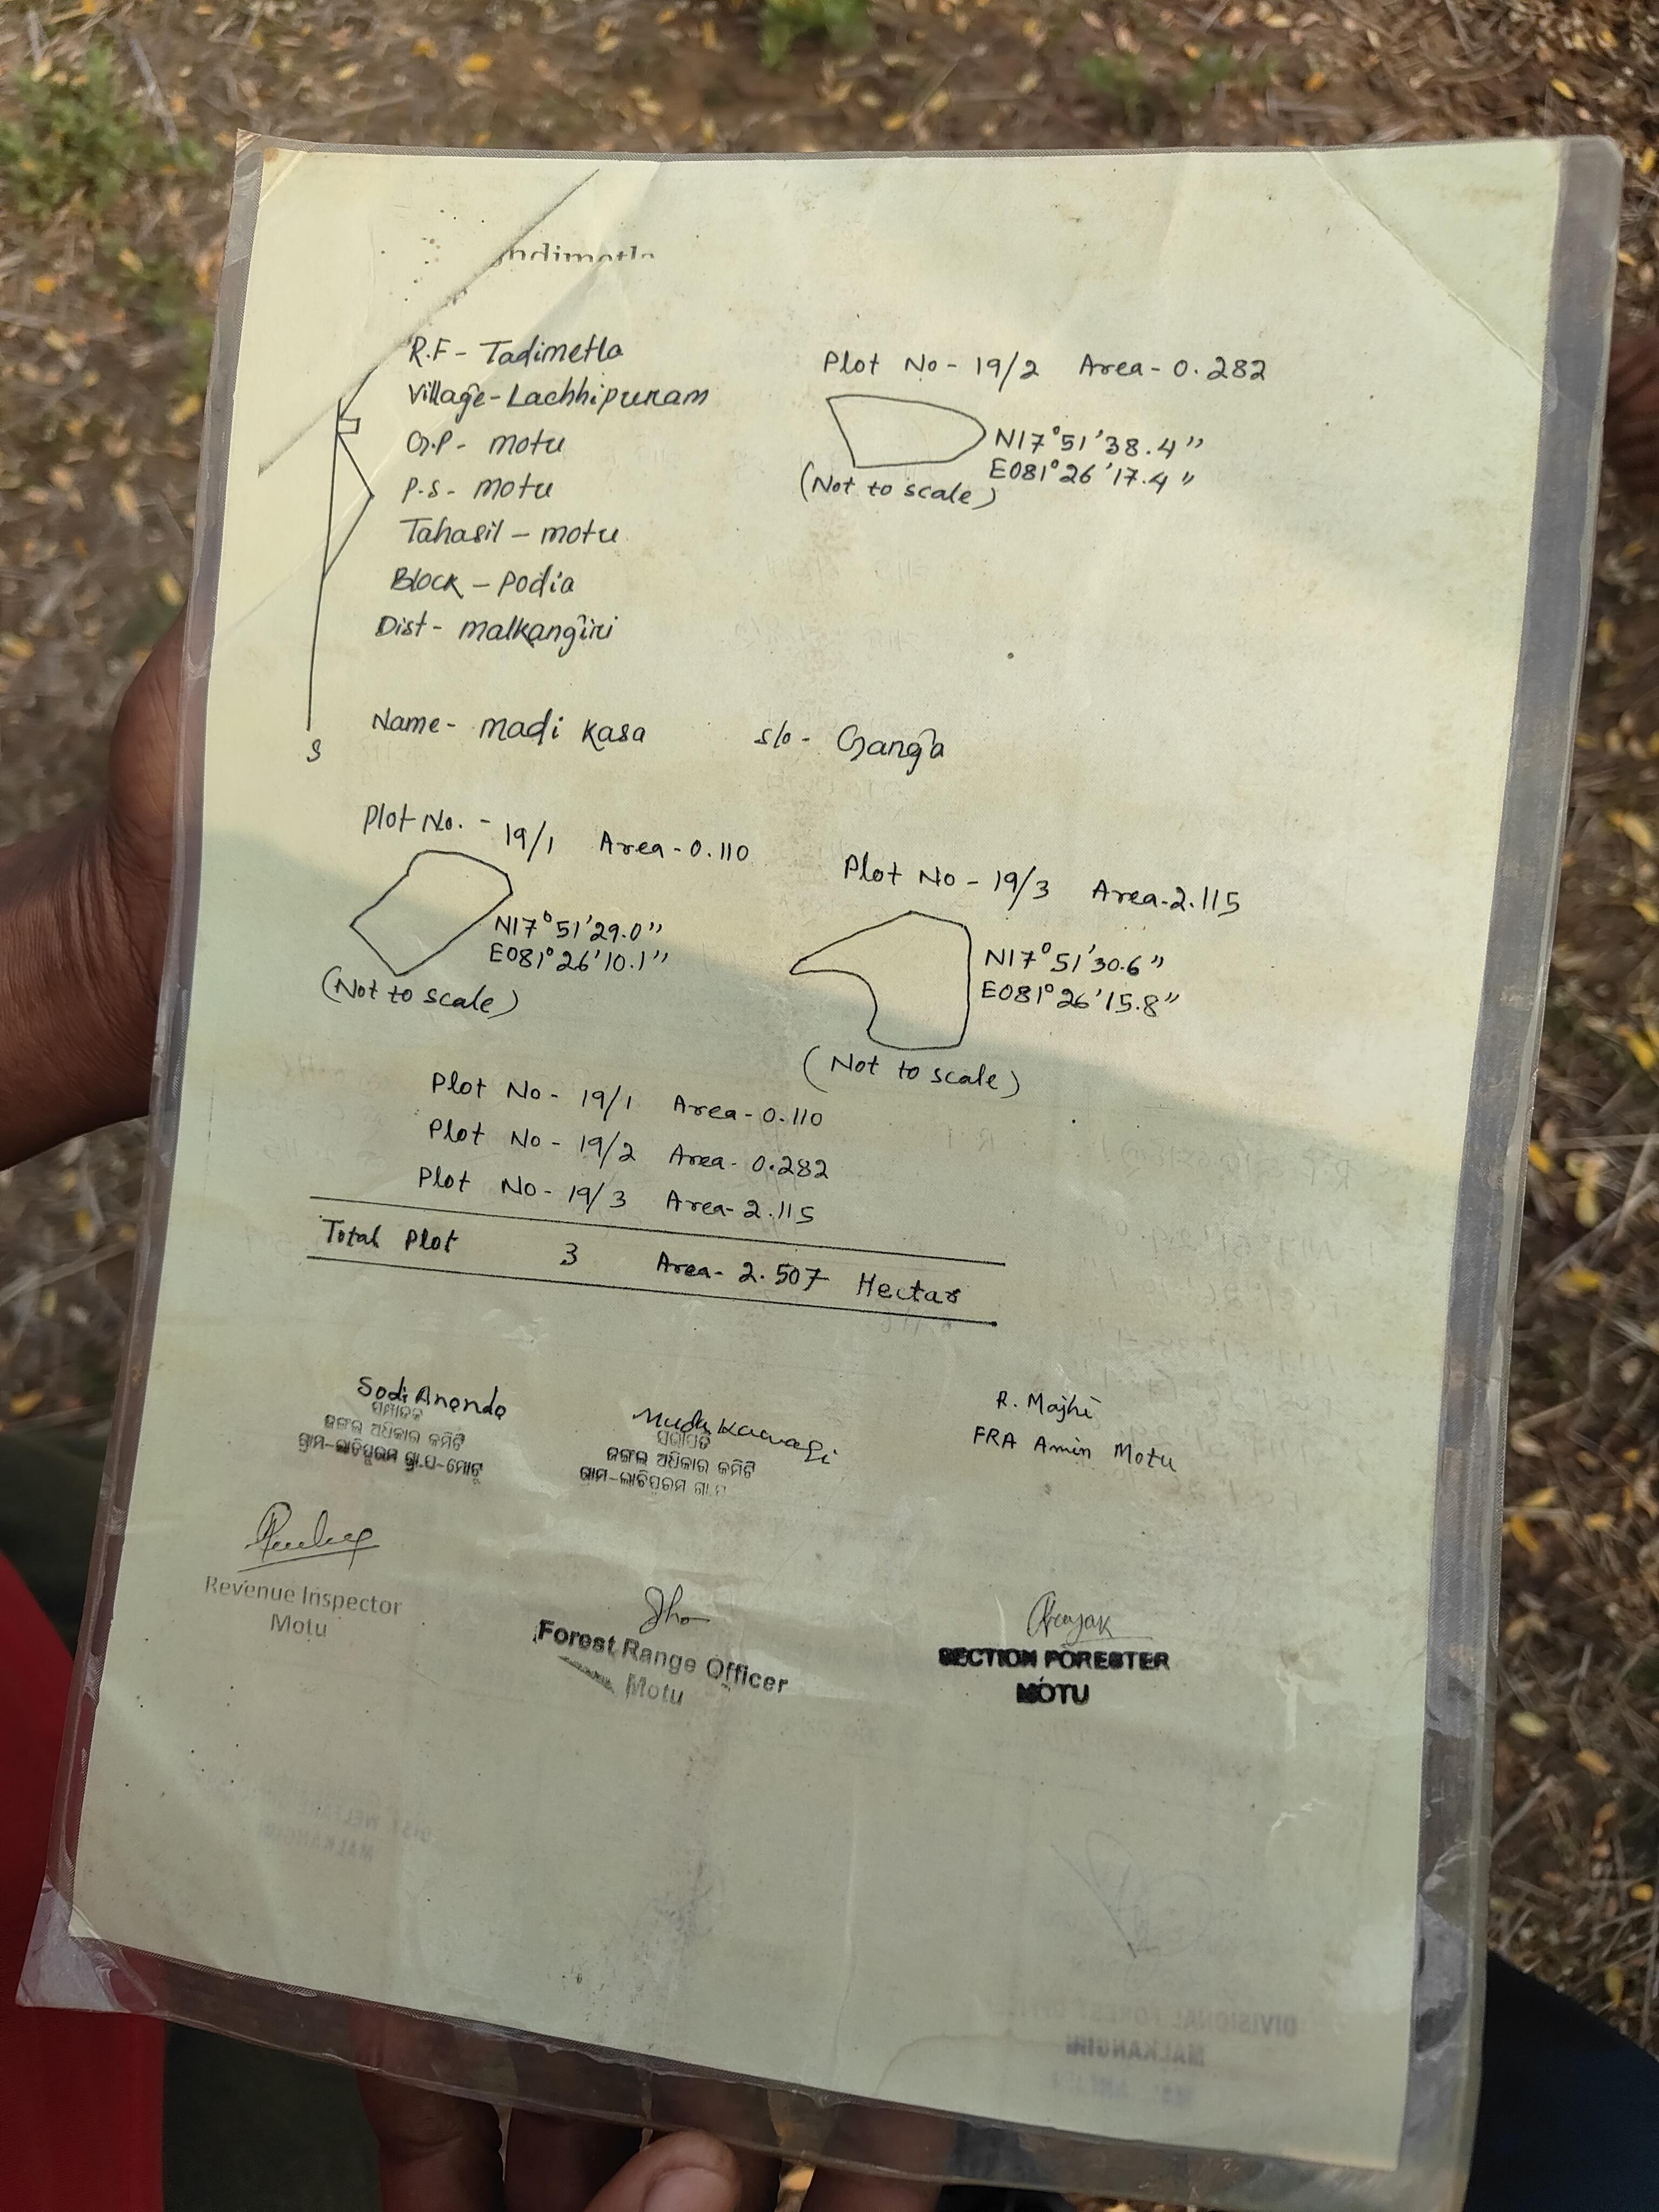 R.F - Tadimetla
Village - Lachhipuram
G.P - motu
P.S - motu
Tahasil - motu
Block - Podia
Dist - malkangiri
Plot No - 19/2 Area - 0.282
N17°51'38.4"
E081°26'17.4"
(Not to scale)
S
Name - madi kasa s/o - Ganga
Plot No. - 19/1 Area - 0.110
N17°51'29.0"
E081°26'10.1"
(Not to scale)
Plot No - 19/3 Area - 2.115
N17°51'30.6"
E081°26'15.8"
(Not to scale)
Plot No - 19/1 Area - 0.110
Plot No - 19/2 Area - 0.282
Plot No - 19/3 Area - 2.115
Total Plot 3 Area - 2.507 Hectar
Sodi Anando
ସମ୍ପାଦକ
ଜଙ୍ଗଲ ଅଧିକାର କମିଟି
Muda
ସଭାପତି
ଜଙ୍ଗଲ ଅଧିକାର କମିଟି
R. Majhi
FRA Amin Motu
Revenue Inspector
Motu
Forest Range Officer
Motu
SECTION FORESTER
MOTU
MALKANGIRI
DIVISIONAL FOREST
MALKANGIRI